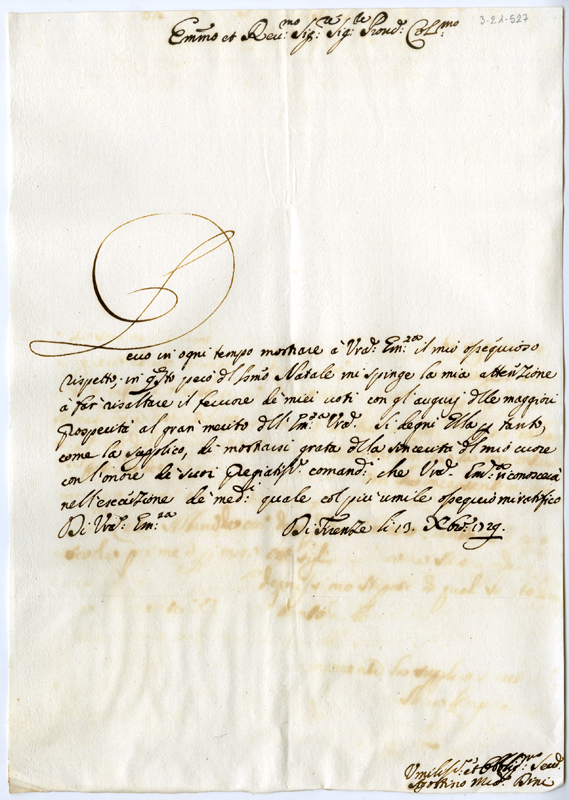 3-21-527
Em̃mo et Reu:mo Sig:re Sig:re Pron: Col:mo
Deuo in ogni tempo mostrare à Vrã: Em:za il mio ossequioso
rispetto: in q̃sto però dl S̃mo Natale mi spinge la mia attenzione
à far risaltare il feruore de miei uoti con gl'augurj d̃lle maggiori
Prosperità al gran merito dell'Em:za Vrã: Si degni Ella p̃ tanto,
come la supplico, di mostrarsi grata d̃lla sincerità d̃l mio cuore
con l'onore de suoi Pregiatiss:i comandi, che Vrã: Em:za riconoscerà
nell'esecuzione de med:i quale col più umile ossequio mi ratifico
Di Vrã: Em:za Di Firenze li 13. Xbre: 1729.
Umiliss:o et Obblig:mo Seru:
Agostino